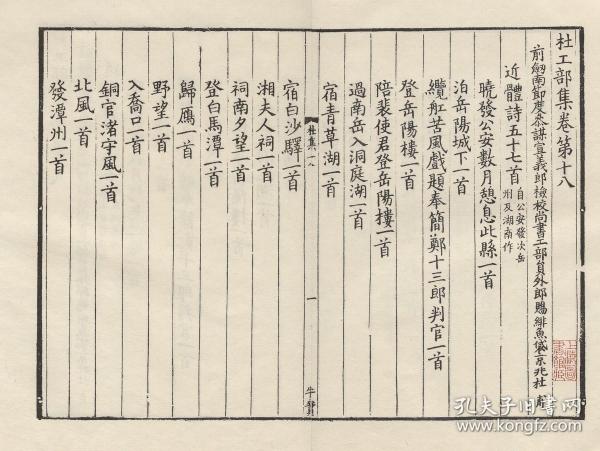 杜工部集卷第十八
前劒南節度參謀宣義郎檢校尚書工部員外郎賜緋魚袋京兆杜甫
近體詩五十七首 自公安發次岳
州及湖南作
曉發公安數月憩息此縣一首
泊岳陽城下一首
纜舡苦風戲題奉簡鄭十三郎判官一首
登岳陽樓一首
陪裴使君登岳陽樓一首
過南岳入洞庭湖一首
宿青草湖一首
杜集十八
一
宿白沙驛一首
湘夫人祠一首
祠南夕望一首
登白馬潭一首
歸鴈一首
野望一首
入喬口一首
銅官渚守風一首
北風一首
發潭州一首
孔夫子旧書网
www.kongfz.com